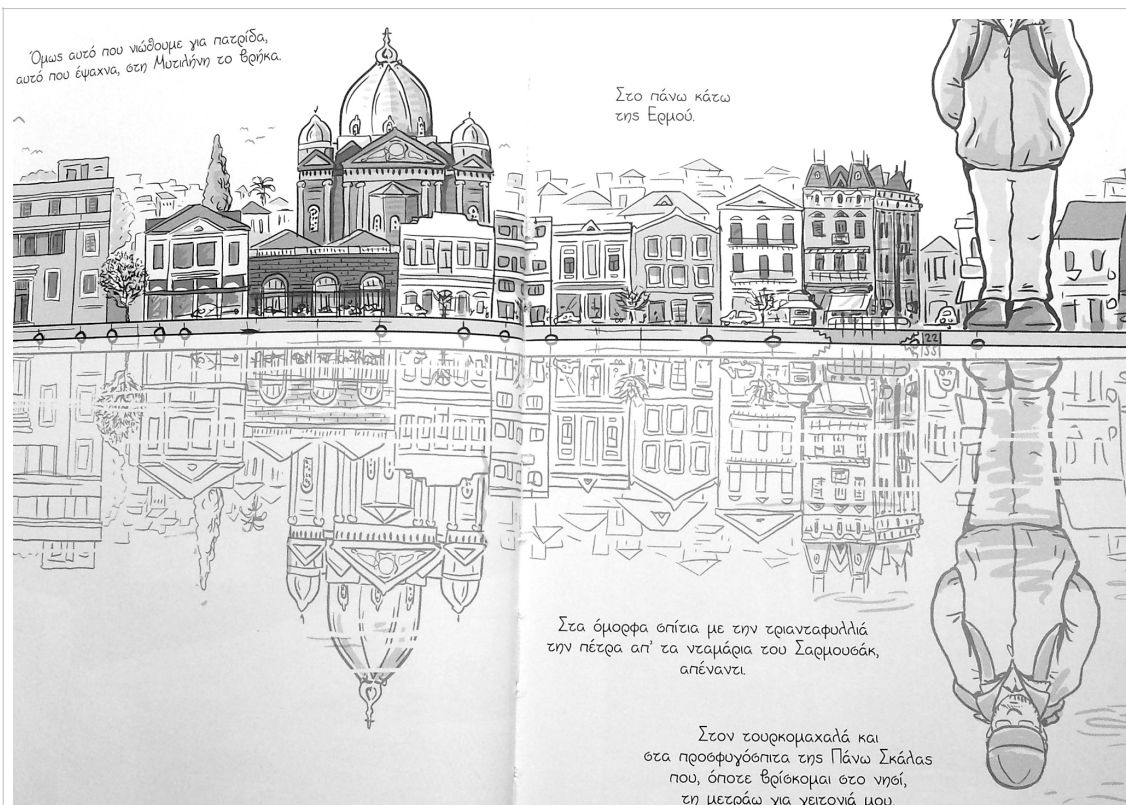 Όμως αυτό που νιώθουμε για πατρίδα,
αυτό που έψαχνα, στη Μυτιλήνη το βρήκα.
Στο πάνω κάτω
της Ερμού.
22
Στα όμορφα σπίτια με την τριανταφυλλιά
την πέτρα απ' τα νταμάρια του Σαρμουσάκ,
απέναντι.
Στον τουρκομαχαλά και
στα προσφυγόσπιτα της Πάνω Σκάλας
που, όποτε βρίσκομαι στο νησί,
τη μετράω για γειτονιά μου